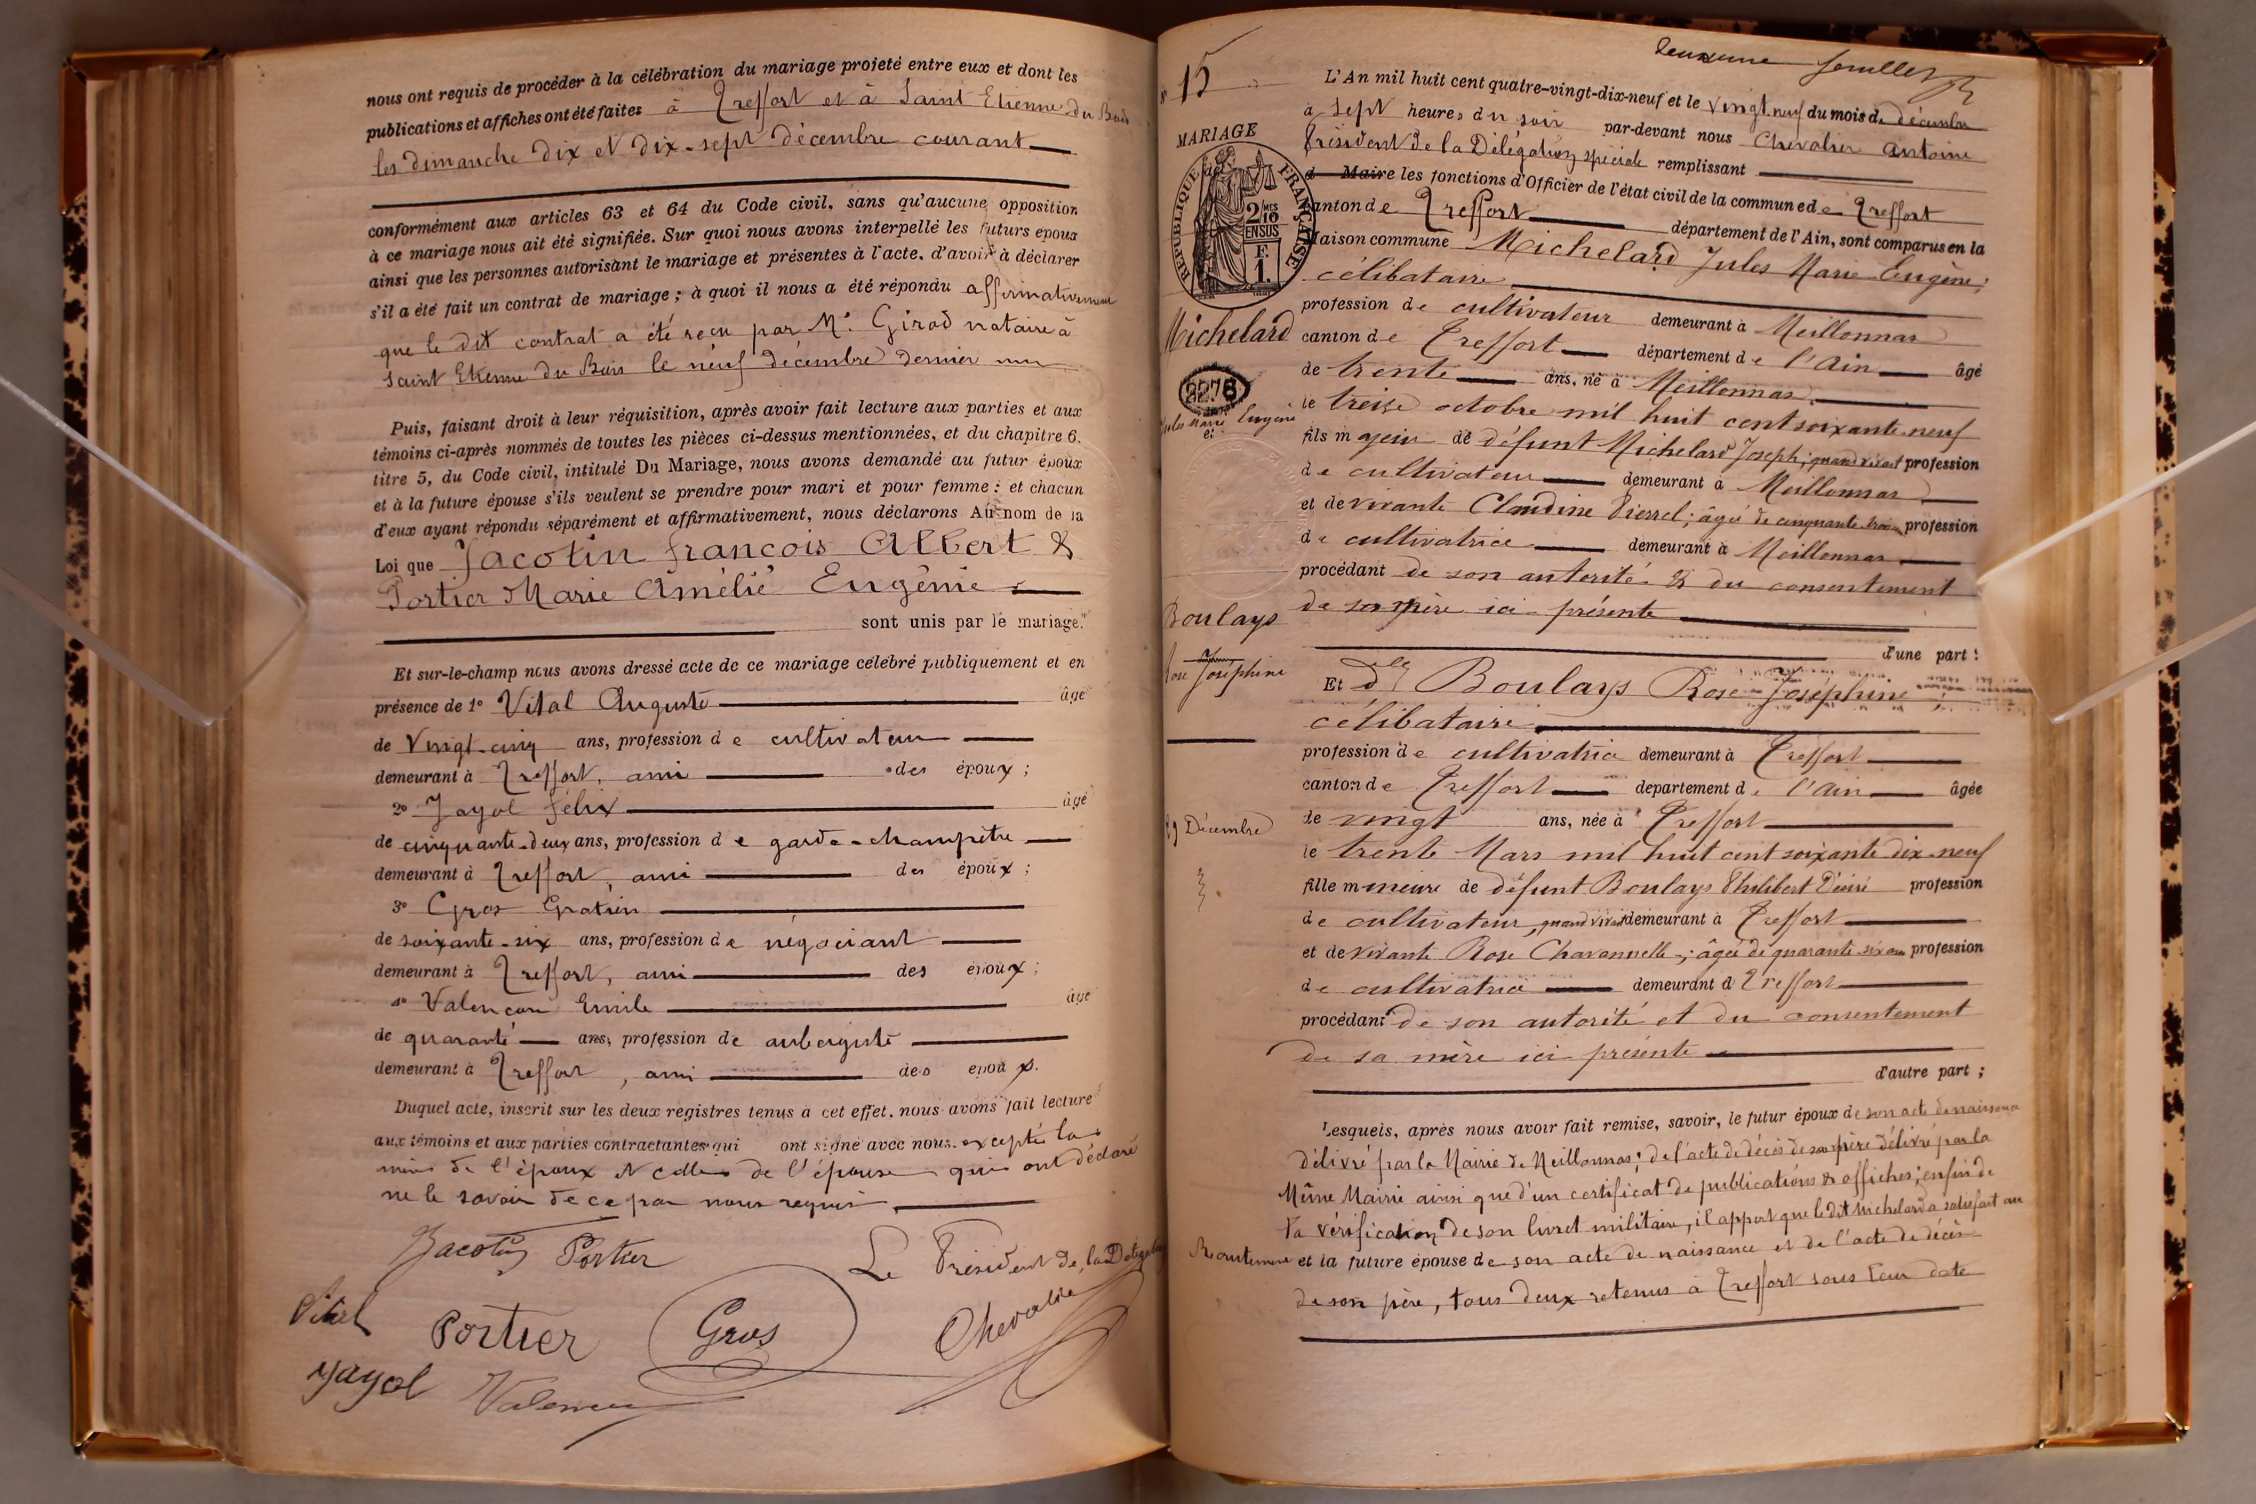 nous ont requis de procéder à la célébration du mariage projeté entre eux et dont les
publications et affiches ont été faites à Treffort et à Saint Etienne du Bois
les dimanche dix et dix-sept décembre courant
conformément aux articles 63 et 64 du Code civil, sans qu'aucune opposition
à ce mariage nous ait été signifiée. Sur quoi nous avons interpellé les futurs époux
ainsi que les personnes autorisant le mariage et présentes à l'acte, d'avoir à déclarer
s'il a été fait un contrat de mariage ; à quoi il nous a été répondu affirmativement
que le dit contrat a été reçu par Me Girod notaire à
Saint Etienne du Bois le neuf décembre dernier
Puis, faisant droit à leur réquisition, après avoir fait lecture aux parties et aux
témoins ci-après nommés de toutes les pièces ci-dessus mentionnées, et du chapitre 6.
titre 5, du Code civil, intitulé Du Mariage, nous avons demandé au futur époux
et à la future épouse s'ils veulent se prendre pour mari et pour femme : et chacun
d'eux ayant répondu séparément et affirmativement, nous déclarons Au nom de la
Loi que Jacotin françois Albert &
Portier Marie Amélie Eugénie
sont unis par le mariage.
Et sur-le-champ nous avons dressé acte de ce mariage célébré publiquement et en
présence de 1° Vital Auguste âgé
de vingt-cinq ans, profession de cultivateur
demeurant à Treffort, ami des époux ;
2° Jayol félix âgé
de cinquante-deux ans, profession de garde-champêtre
demeurant à Treffort, ami des époux ;
3° Gros Gratien
de soixante-six ans, profession de négociant
demeurant à Treffort, ami des époux ;
4° Valençon Emile âgé
de quarante ans, profession de aubergiste
demeurant à Treffort, ami des époux.
Duquel acte, inscrit sur les deux registres tenus à cet effet, nous avons fait lecture
aux témoins et aux parties contractantes qui ont signé avec nous. excepté la
mère de l'époux et celle de l'épouse qui ont déclaré
ne le savoir de ce par nous requis
Jacotin Portier
Le Président de la Délégation
Vital Portier Gros Chevalier
Jayol
deuxième feuillet
N° 15
MARIAGE
RÉPUBLIQUE FRANÇAISE
2/10 MES
EN SUS
F.
1.
Michelard
2278
Jules Marie Eugène
et
Boulays
Rose Joséphine
29 Décembre
L'An mil huit cent quatre-vingt-dix-neuf et le vingt neuf du mois de décembre
à sept heures du soir par-devant nous Chevalier Antoine
Président de la Délégation spéciale remplissant
d Maire les fonctions d'Officier de l'état civil de la commune de Treffort
canton de Treffort département de l'Ain, sont comparus en la
Maison commune Michelard Jules Marie Eugène,
célibataire
profession de cultivateur demeurant à Meillonnas
canton de Treffort département de l'Ain âgé
de trente ans, né à Meillonnas
le treize octobre mil huit cent soixante neuf
fils majeur de défunt Michelard Joseph, quand vivait profession
de cultivateur demeurant à Meillonnas
et de vivante Claudine Pierrel, âgée de cinquante trois ans profession
de cultivatrice demeurant à Meillonnas
procédant de son autorité & du consentement
de sa mère ici présente
d'une part :
Et dlle Boulays Rose Joséphine
célibataire
profession de cultivatrice demeurant à Treffort
canton de Treffort département de l'Ain âgée
de vingt ans, née à Treffort
le trente Mars mil huit cent soixante dix-neuf
fille mineure de défunt Boulays Philibert Désiré profession
de cultivateur, quand vivait demeurant à Treffort
et de vivante Rose Chavannelle, âgée de quarante six ans profession
de cultivatrice demeurant à Treffort
procédant de son autorité et du consentement
de sa mère ici présente
d'autre part ;
Lesquels, après nous avoir fait remise, savoir, le futur époux de son acte de naissance
délivré par la Mairie de Meillonnas; de l'acte de décès de son père délivré par la
Même Mairie ainsi que d'un certificat de publications & affiches; enfin de
la vérification de son livret militaire, il appert que le dit Michelard a satisfait au
Recrutement et la future épouse de son acte de naissance et de l'acte de décès
de son père, tous deux retenus à Treffort sous leur date